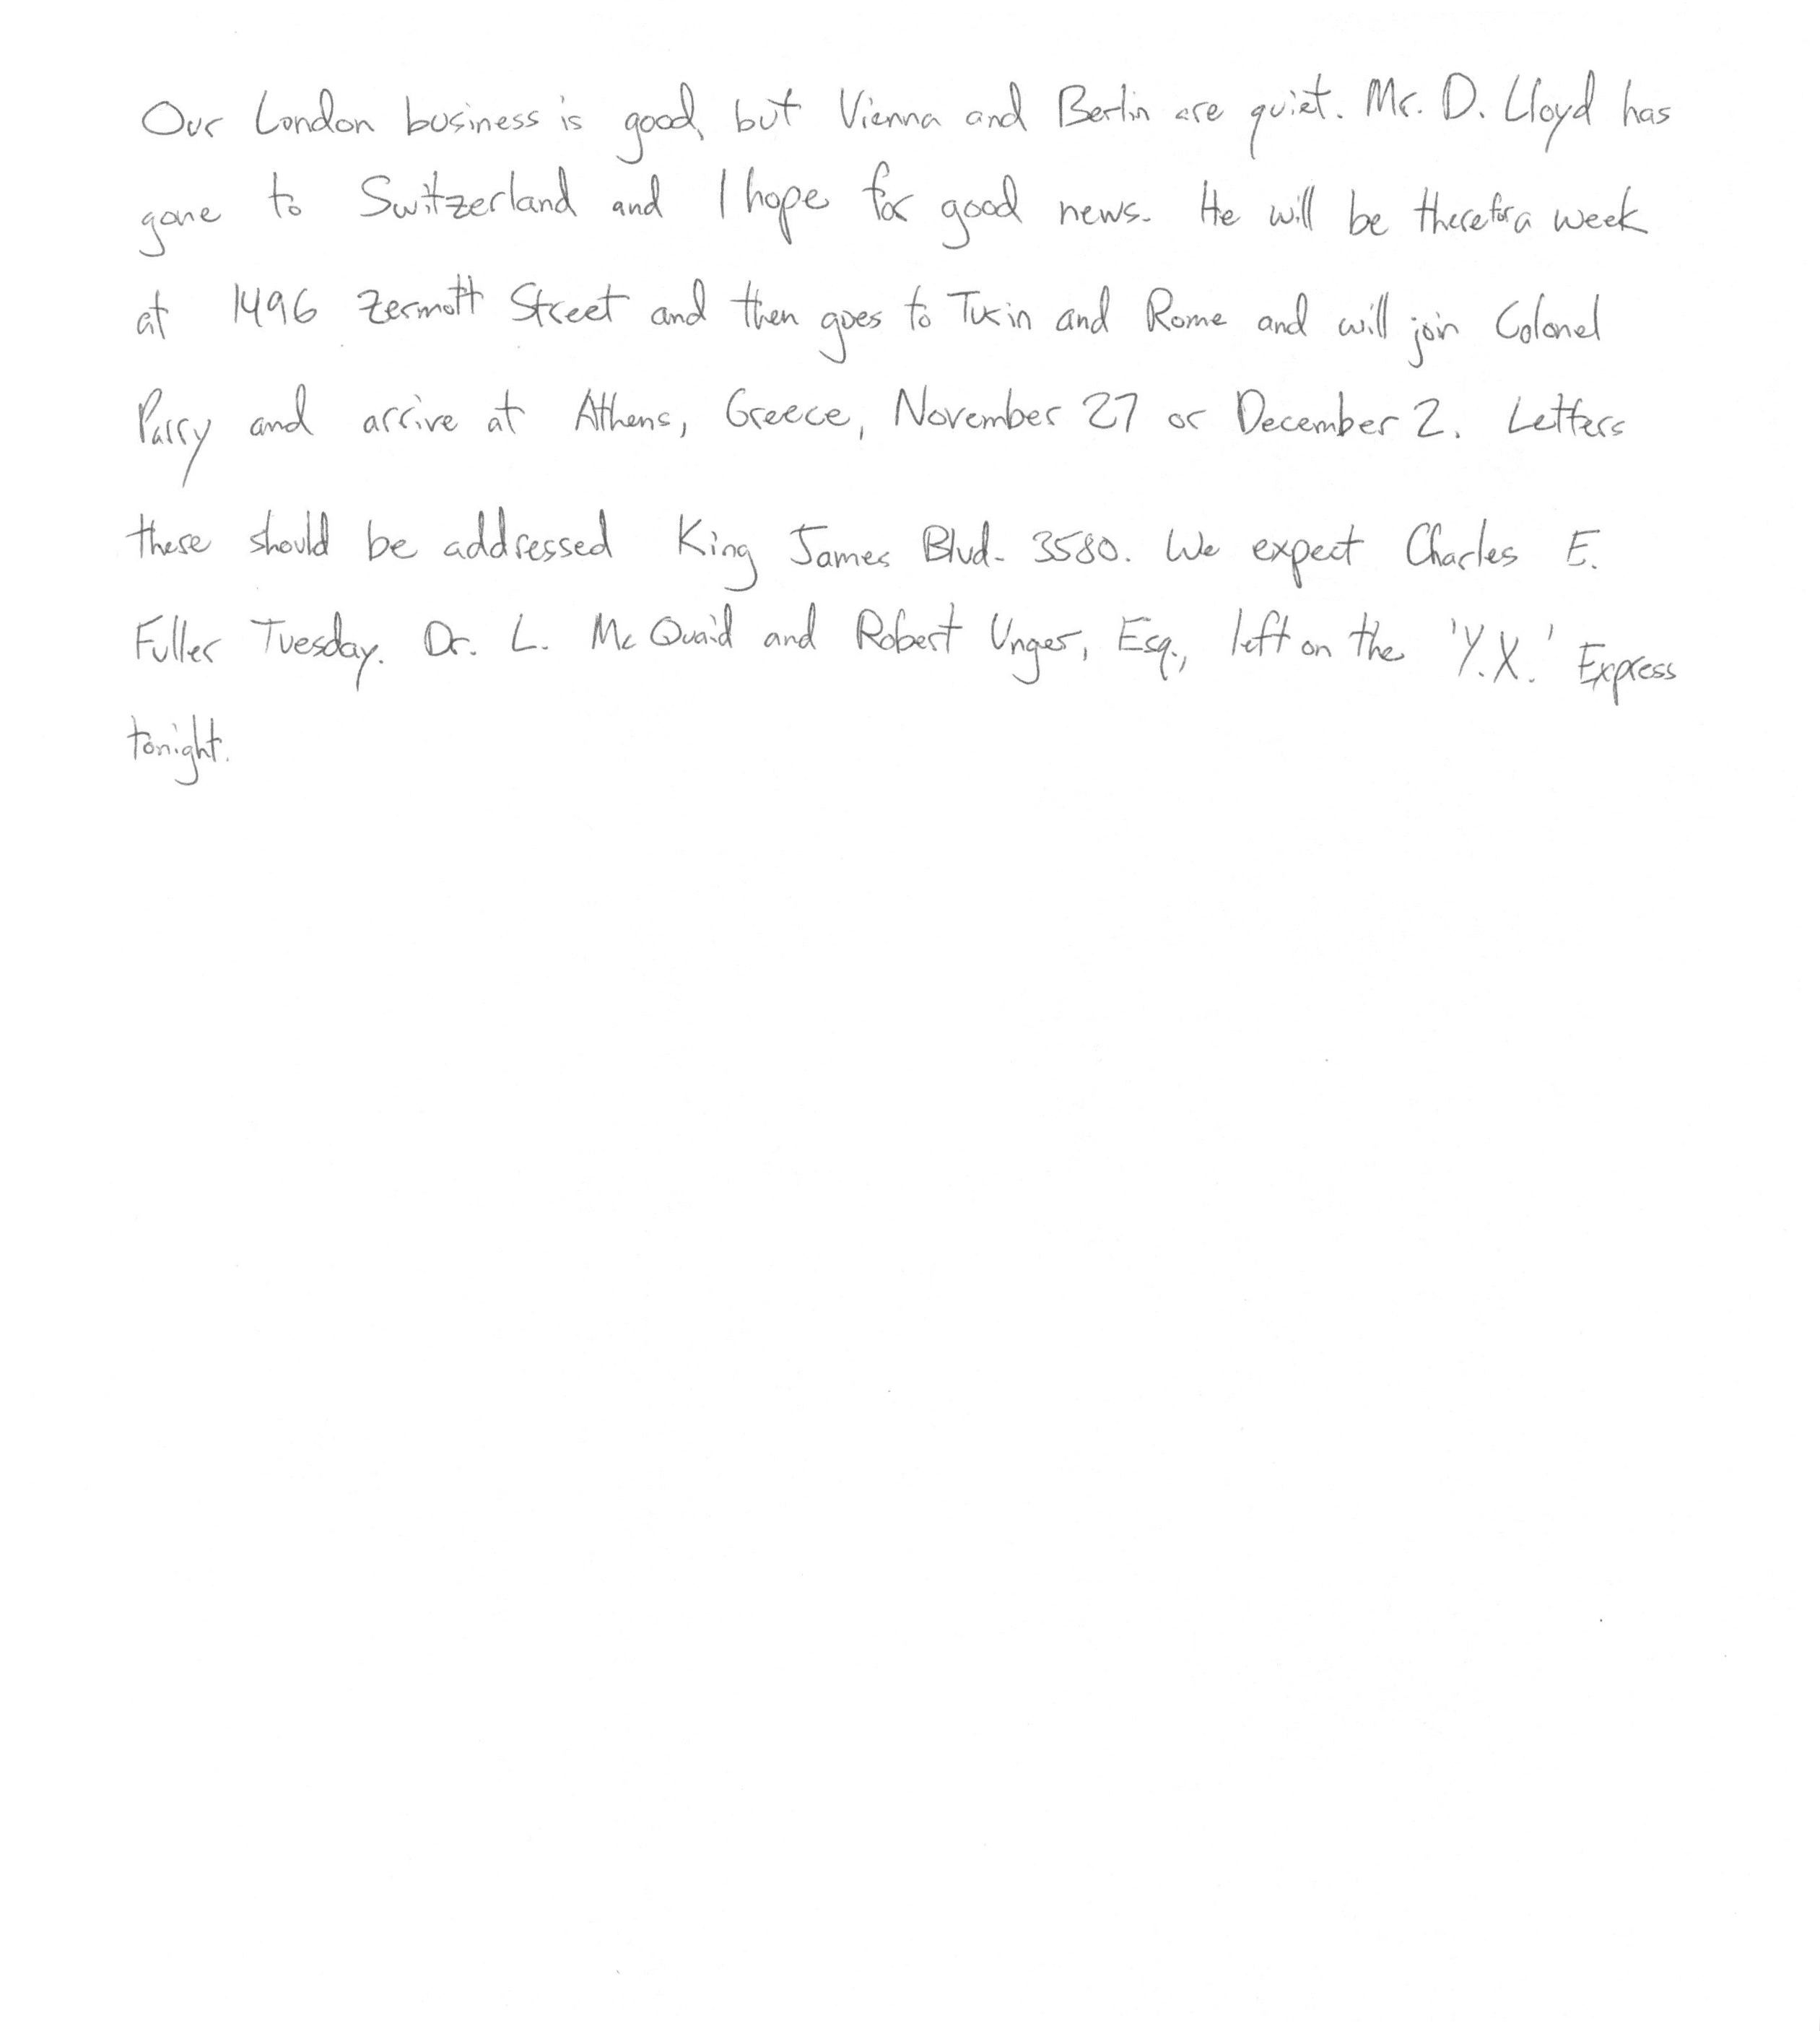 Our London business is good, but Vienna and Berlin are quiet. Mr. D. Lloyd has
gone to Switzerland and I hope for good news. He will be there for a week
at 1496 Zermott Street and then goes to Turin and Rome and will join Colonel
Parry and arrive at Athens, Greece, November 27 or December 2. Letters
there should be addressed King James Blvd. 3580. We expect Charles E.
Fuller Tuesday. Dr. L. McQuaid and Robert Unger, Esq., left on the 'Y.X.' Express
tonight.